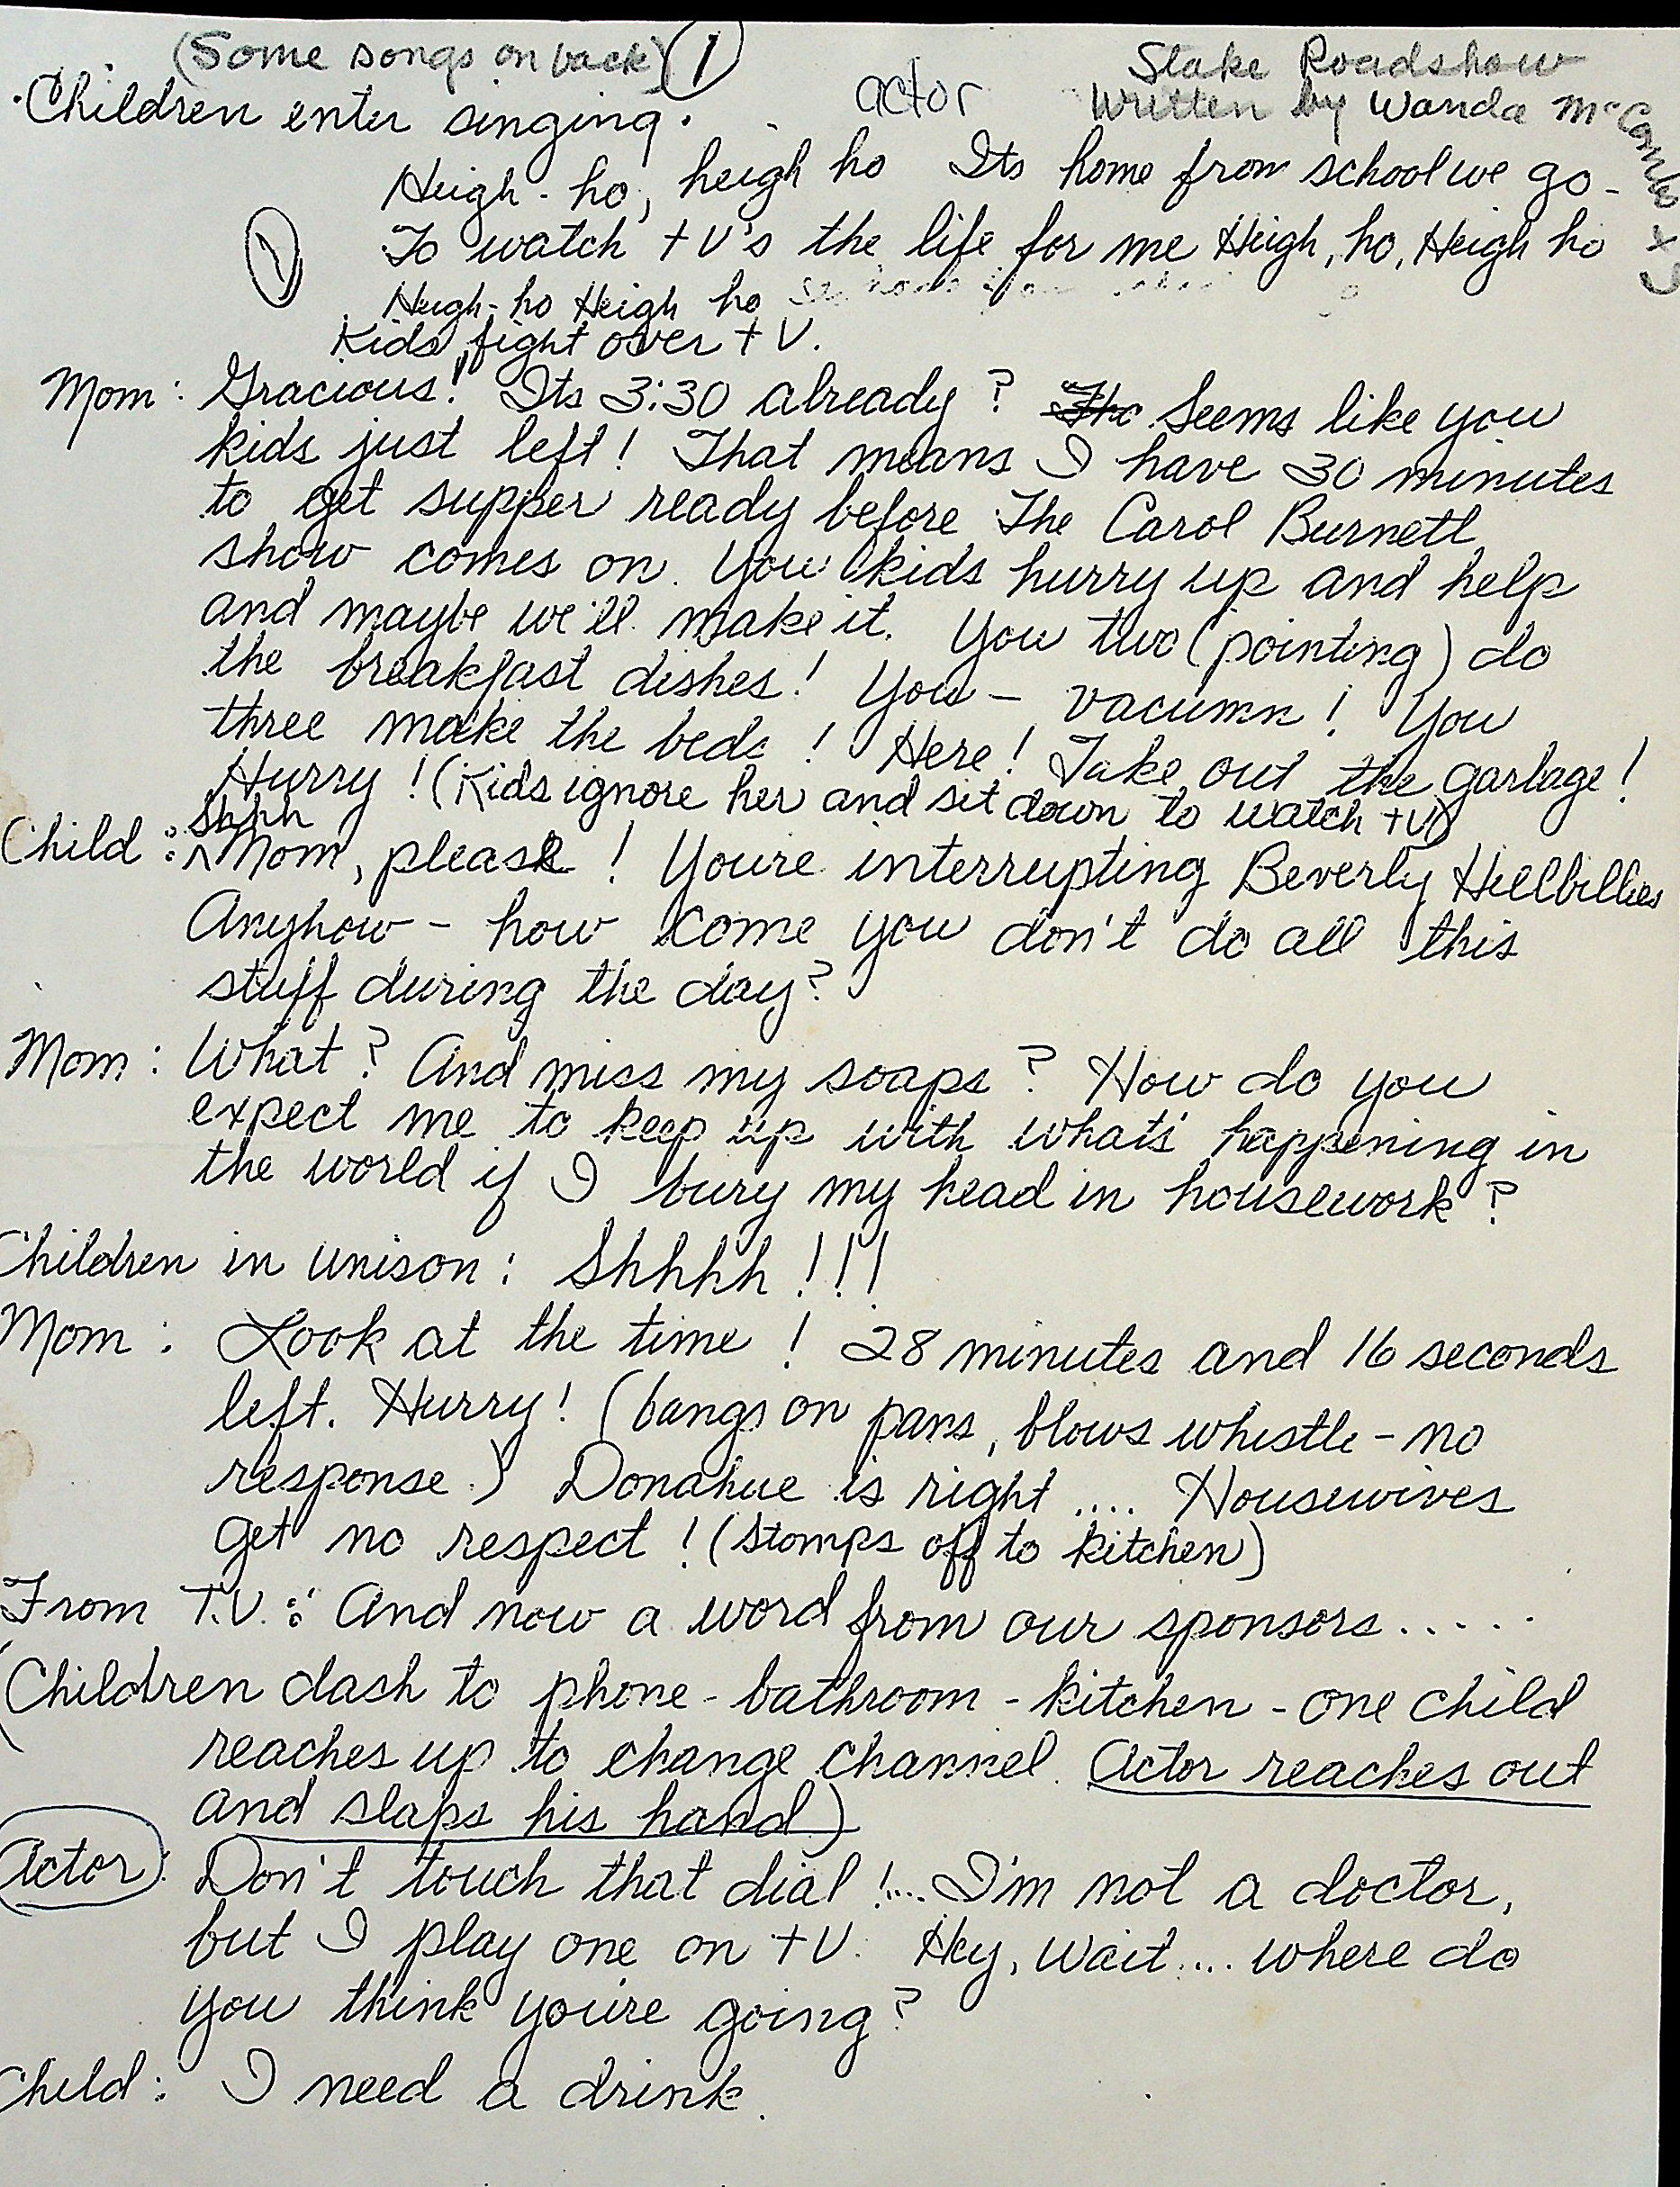 (Some songs on back) 1
Stake Roadshow
actor
Written by Wanda McCombs
Children enter singing.
Heigh-ho, heigh ho Its home from school we go -
1
To watch tv's the life for me Heigh, ho, Heigh ho
Heigh-ho Heigh ho
Kids fight over tV.
Mom: Gracious! Its 3:30 already? The Seems like you
kids just left! That means I have 30 minutes
to get supper ready before The Carol Burnett
show comes on. You kids hurry up and help
and maybe we'll make it. You two (pointing) do
the breakfast dishes! You - vacumn! You
three make the beds! Here! Take out the garbage!
Hurry! (Kids ignore her and sit down to watch tv)
Shhh
Child: ^Mom, please! You're interrupting Beverly Hillbillies
Anyhow - how come you don't do all this
stuff during the day?
Mom: What? And miss my soaps? How do you
expect me to keep up with what's happening in
the world if I bury my head in housework?
Children in unison: Shhhh!!!
Mom: Look at the time! 28 minutes and 16 seconds
left. Hurry! (bangs on pans, blows whistle - no
response.) Donahue is right .... Housewives
get no respect! (Stomps off to kitchen)
From T.V.: And now a word from our sponsors.....
(Children dash to phone - bathroom - kitchen - one child
reaches up to change channel. Actor reaches out
and slaps his hand)
Actor: Don't touch that dial!.... I'm not a doctor,
but I play one on tV. Hey, wait.... where do
you think you're going?
Child: I need a drink.